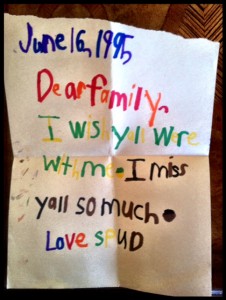 June 16, 1995
Dear family,
I wish yall were
with me. I miss
yall so much.
Love SPUD